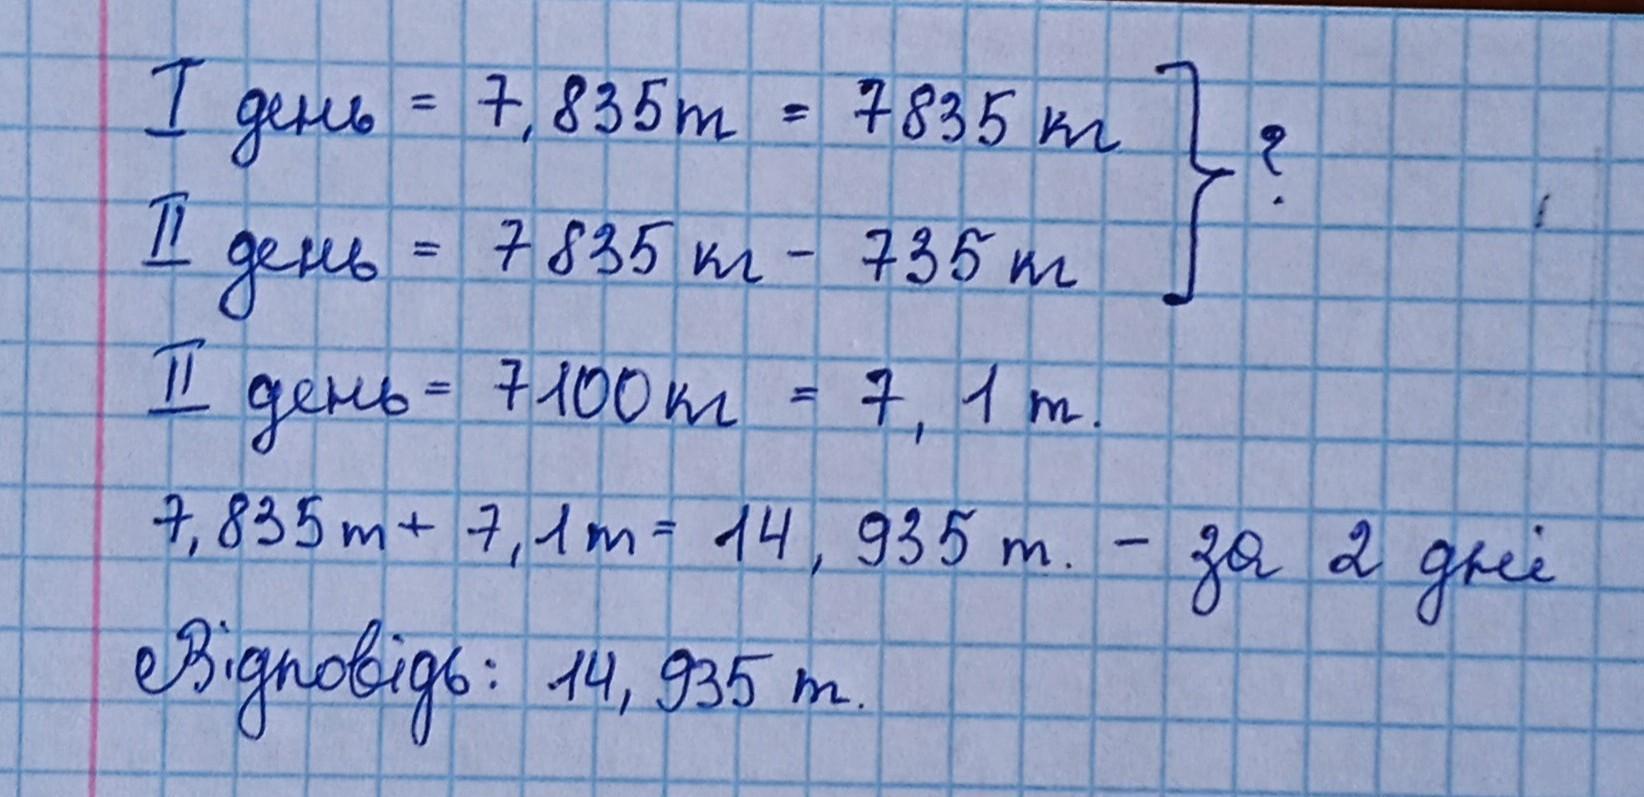 I день = 7,835т = 7835 кг } ?
II день = 7835 кг - 735 кг
II день = 7100кг = 7,1 т.
7,835т + 7,1т = 14,935 т. - за 2 дні
Відповідь: 14,935 т.